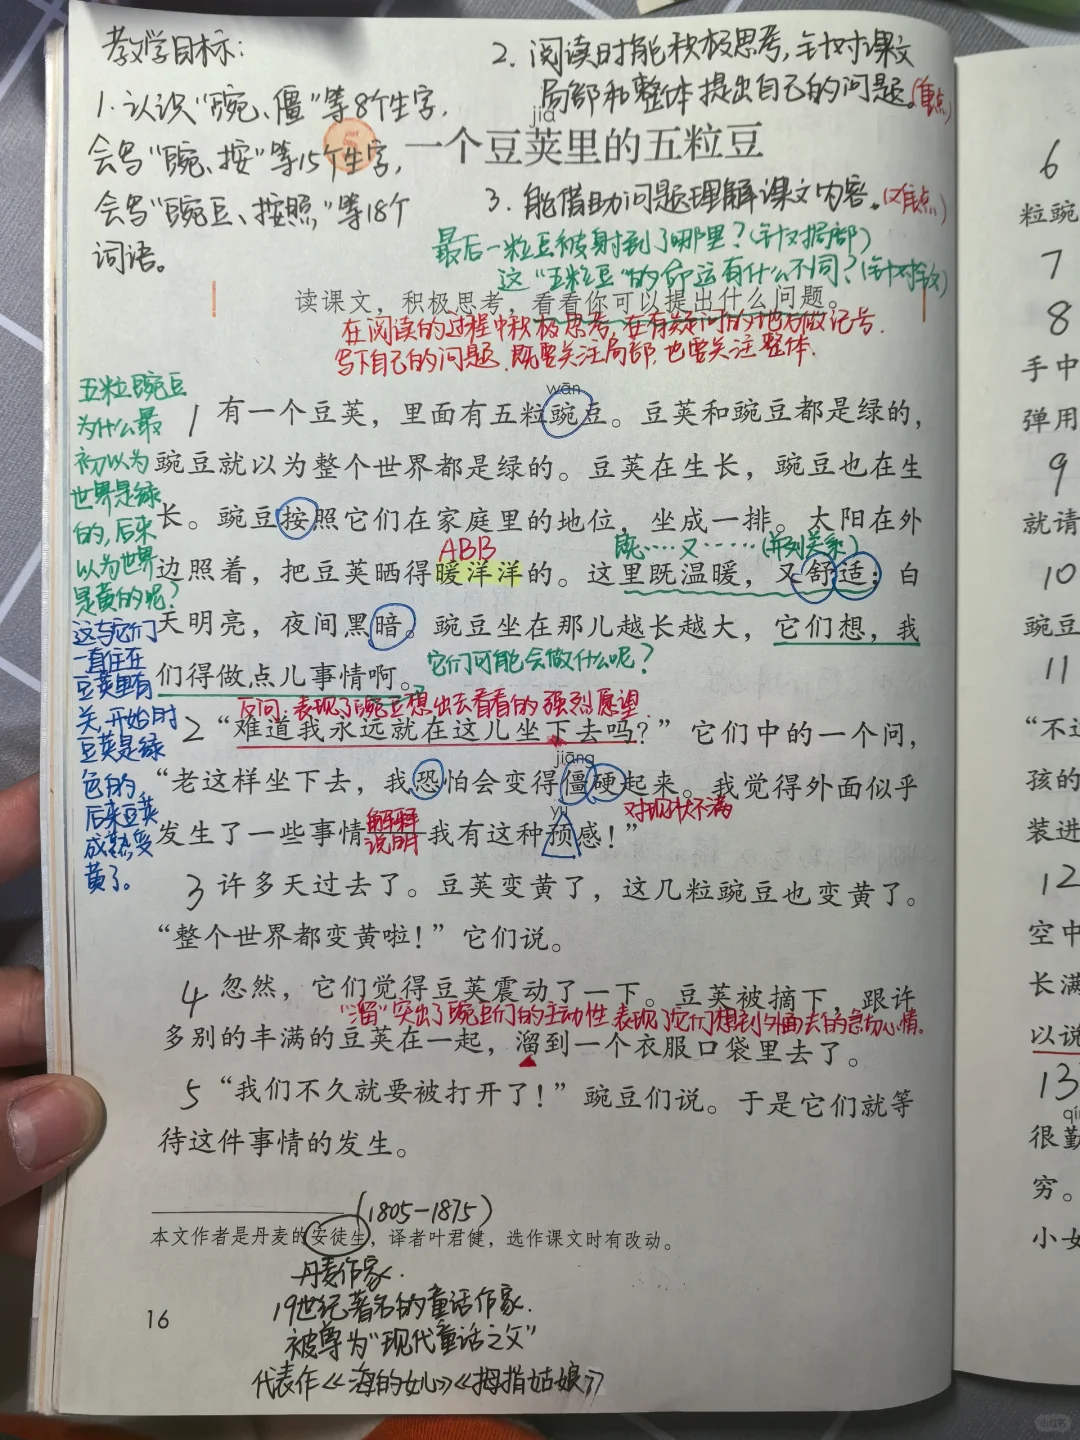 教学目标:
1.认识“豌、僵”等8个生字,
会写“豌、按”等15个生字,
会写“豌豆、按照”等18个
词语。
2. 阅读时能积极思考,针对课文
局部和整体提出自己的问题。(重点)
jiá
5 一个豆荚里的五粒豆
3. 能借助问题理解课文内容。(难点)
最后一粒豆被射到了哪里?(针对局部)
这“五粒豆”的命运有什么不同?(针对全文)
读课文,积极思考,看看你可以提出什么问题。
在阅读的过程中积极思考,在有疑问的地方做记号.
写下自己的问题.既要关注局部,也要关注整体.
五粒豌豆
为什么最
初以为
世界是绿
的,后来
以为世界
是黄的呢?
这与它们
一直住在
豆荚里有
关,开始时
豆荚是绿
色的,
后来豆荚
成熟,变
黄了。
wān
1 有一个豆荚,里面有五粒豌豆。豆荚和豌豆都是绿的,
豌豆就以为整个世界都是绿的。豆荚在生长,豌豆也在生
长。豌豆按照它们在家庭里的地位,坐成一排。太阳在外
ABB
既……又……(并列关系)
边照着,把豆荚晒得暖洋洋的。这里既温暖,又舒适;白
天明亮,夜间黑暗。豌豆坐在那儿越长越大,它们想,我
们得做点儿事情啊。
它们可能会做什么呢?
反问:表现了豌豆想出去看看的强烈愿望.
2 “难道我永远就在这儿坐下去吗?”它们中的一个问,
jiāng
“老这样坐下去,我恐怕会变得僵硬起来。我觉得外面似乎
解释
说明
yù
对现状不满
发生了一些事情——我有这种预感!”
3 许多天过去了。豆荚变黄了,这几粒豌豆也变黄了。
“整个世界都变黄啦!”它们说。
4 忽然,它们觉得豆荚震动了一下。豆荚被摘下,跟许
“溜”突出了豌豆们的主动性,表现了它们想到外面去的急切心情.
多别的丰满的豆荚在一起,溜到一个衣服口袋里去了。
5 “我们不久就要被打开了!”豌豆们说。于是它们就等
待这件事情的发生。
(1805-1875)
本文作者是丹麦的安徒生,译者叶君健,选作课文时有改动。
丹麦作家.
19世纪著名的童话作家.
被尊为“现代童话之父”
代表作《海的女儿》《拇指姑娘》
16
6
粒豌
7
8
手中
弹用
9
就请
10
豌豆
11
“不
孩的
装进
12
空中
长满
以说
13
qín
很勤
穷。
小女
小红书